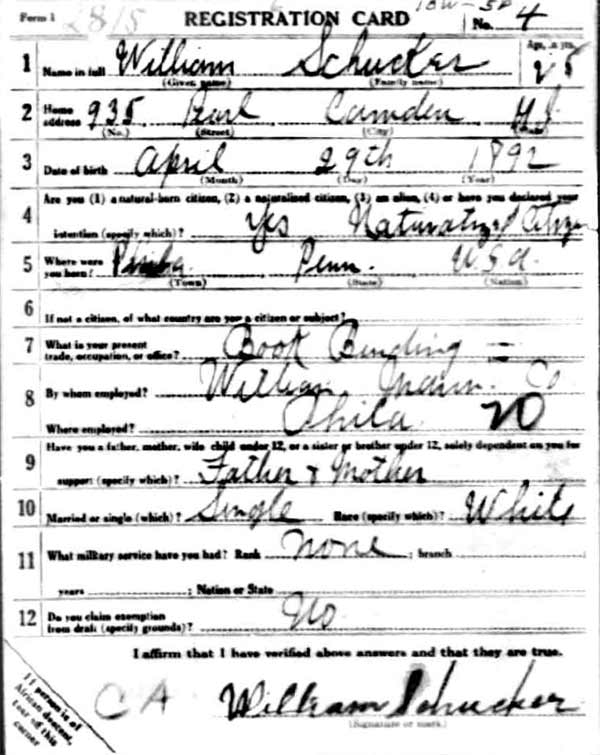 Form 1 2815 REGISTRATION CARD No. 4
1 Name in full William Schucker Age, in yrs. 25
(Given name) (Family name)
2 Home address 935 Pearl Camden N.J.
(No.) (Street) (City) (State)
3 Date of birth April 29th 1892
(Month) (Day) (Year)
4 Are you (1) a natural-born citizen, (2) a naturalized citizen, (3) an alien, (4) or have you declared your
intention (specify which)? Yes Naturalized Citizen
5 Where were you born? Phila Penn. U.S.A.
(Town) (State) (Nation)
6 If not a citizen, of what country are you a citizen or subject?
7 What is your present trade, occupation, or office? Book Binding
8 By whom employed? William Mann Co
Where employed? Phila
9 Have you a father, mother, wife child under 12, or a sister or brother under 12, solely dependent on you for
support (specify which)? Father & Mother
10 Married or single (which)? Single Race (specify which)? White
11 What military service have you had? Rank None ; branch
years ; Nation or State
12 Do you claim exemption from draft (specify grounds)? No
I affirm that I have verified above answers and that they are true.
CA William Schucker
(Signature or mark)
If person is of
African descent,
tear off this
corner